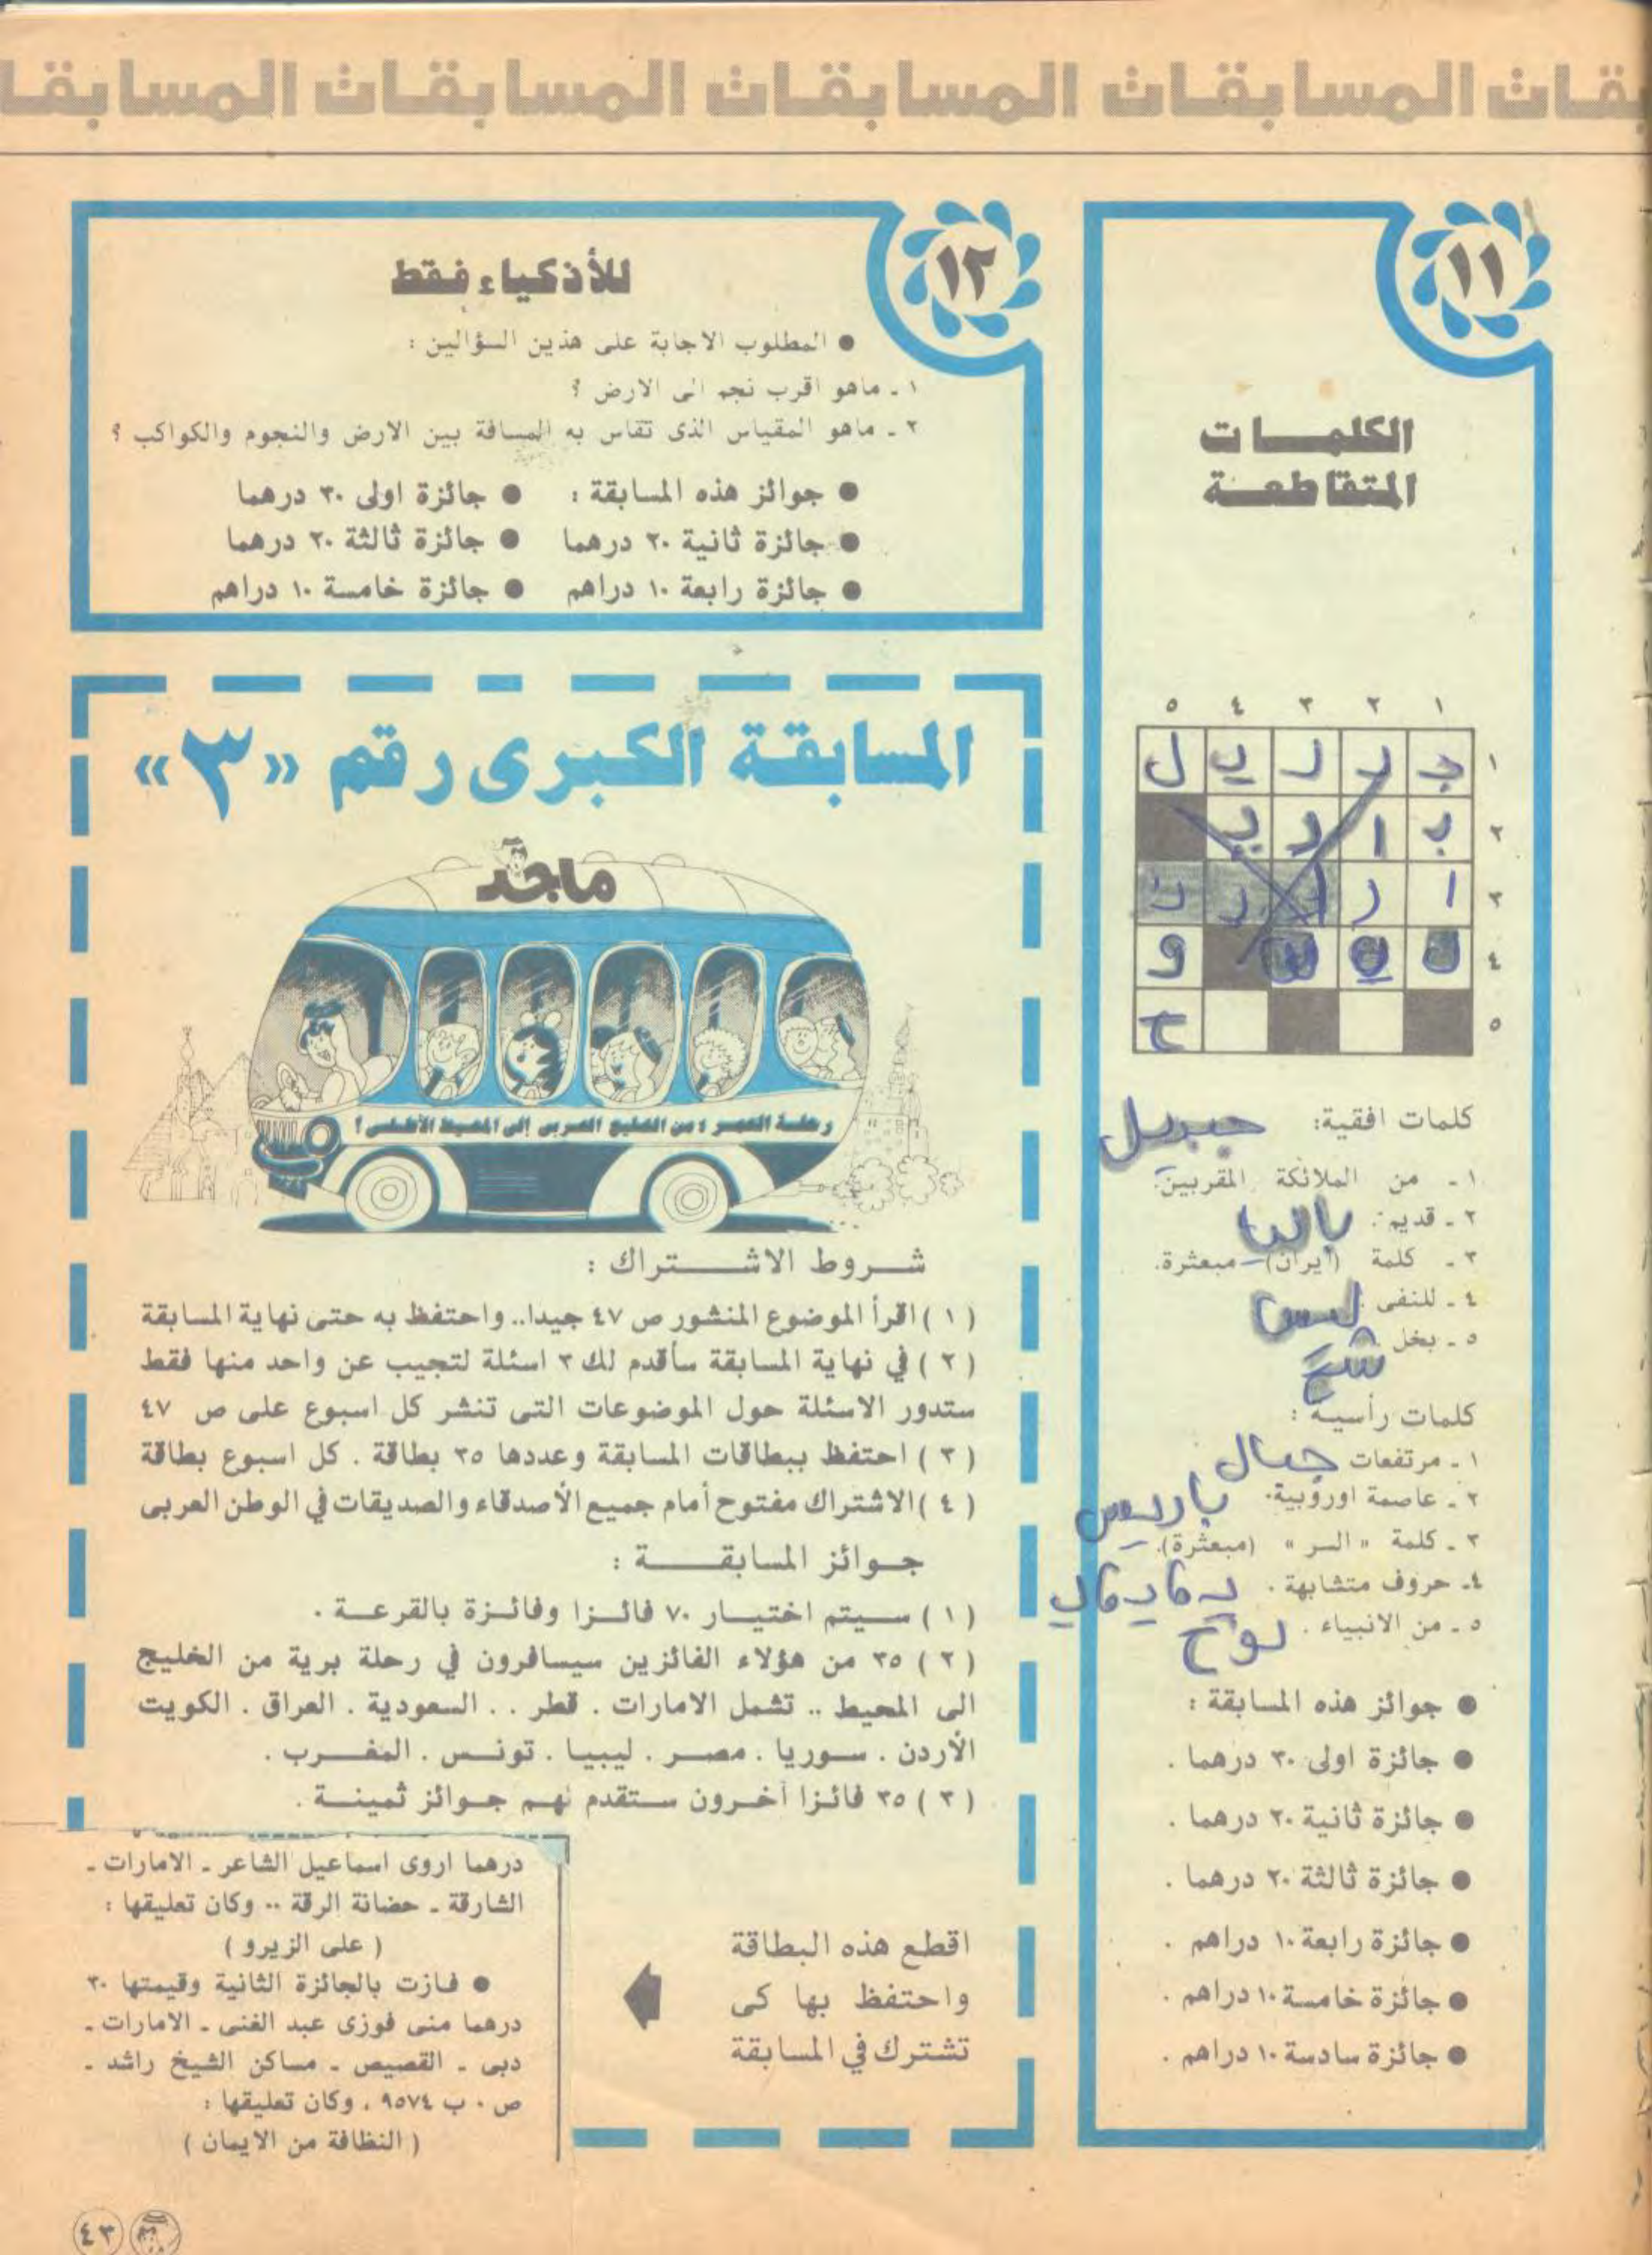 المسابقات المسابقات المسابقات المسابقات
١١
الكلمـــات
المتقاطعـــة
١ ٢ ٣ ٤ ٥
١
٢
٣
٤
٥
كلمات افقية:
١ - من الملائكة المقربين.
٢ - قديم.
٣ - كلمة (ايران) مبعثرة.
٤ - للنفى ليس
٥ - بخل شح
كلمات رأسية :
١ - مرتفعات جبال
٢ - عاصمة اوروبية. باريس
٣ - كلمة « السر » (مبعثرة).
٤- حروف متشابهة .
٥ - من الانبياء . نوح
● جوائز هذه المسابقة :
● جائزة اولى ٣٠ درهما .
● جائزة ثانية ٢٠ درهما .
● جائزة ثالثة ٢٠ درهما .
● جائزة رابعة ١٠ دراهم .
● جائزة خامسة ١٠ دراهم .
● جائزة سادسة ١٠ دراهم .
١٢
للأذكياء فقط
● المطلوب الاجابة على هذين السؤالين :
١ - ماهو اقرب نجم الى الارض ؟
٢ - ماهو المقياس الذى تقاس به المسافة بين الارض والنجوم والكواكب ؟
● جوائز هذه المسابقة : ● جائزة اولى ٣٠ درهما
● جائزة ثانية ٢٠ درهما ● جائزة ثالثة ٢٠ درهما
● جائزة رابعة ١٠ دراهم ● جائزة خامسة ١٠ دراهم
المسابقة الكبرى رقم «٣»
ماجد
رحلة العمر : من الخليج العربى إلى المحيط الأطلسى !
شـــروط الاشـــــتراك :
( ١ ) اقرأ الموضوع المنشور ص ٤٧ جيدا.. واحتفظ به حتى نهاية المسابقة
( ٢ ) في نهاية المسابقة سأقدم لك ٣ اسئلة لتجيب عن واحد منها فقط
ستدور الاسئلة حول الموضوعات التى تنشر كل اسبوع على ص ٤٧
( ٣ ) احتفظ ببطاقات المسابقة وعددها ٣٥ بطاقة . كل اسبوع بطاقة
( ٤ ) الاشتراك مفتوح أمام جميع الأصدقاء والصديقات في الوطن العربى
جــوائز المسابقـــــة :
( ١ ) سـيتم اختيـار ٧٠ فائـزا وفائـزة بالقرعـة .
( ٢ ) ٣٥ من هؤلاء الفائزين سيسافرون في رحلة برية من الخليج
الى المحيط .. تشمل الامارات . قطر . . السعودية . العراق . الكويت
الأردن . سـوريا . مصـر . ليبيـا . تونـس . المغـــرب .
( ٣ ) ٣٥ فائـزا آخـرون سـتقدم لهـم جـوائز ثمينـة .
اقطع هذه البطاقة
واحتفظ بها كى
تشترك في المسابقة
درهما اروى اسماعيل الشاعر - الامارات -
الشارقة - حضانة الرقة .. وكان تعليقها :
( على الزيرو )
● فـازت بالجائزة الثانية وقيمتها ٣٠
درهما منى فوزى عبد الغنى - الامارات -
دبى - القصيص - مساكن الشيخ راشد -
ص . ب ٩٥٧٤ ، وكان تعليقها :
( النظافة من الايمان )
٤٣